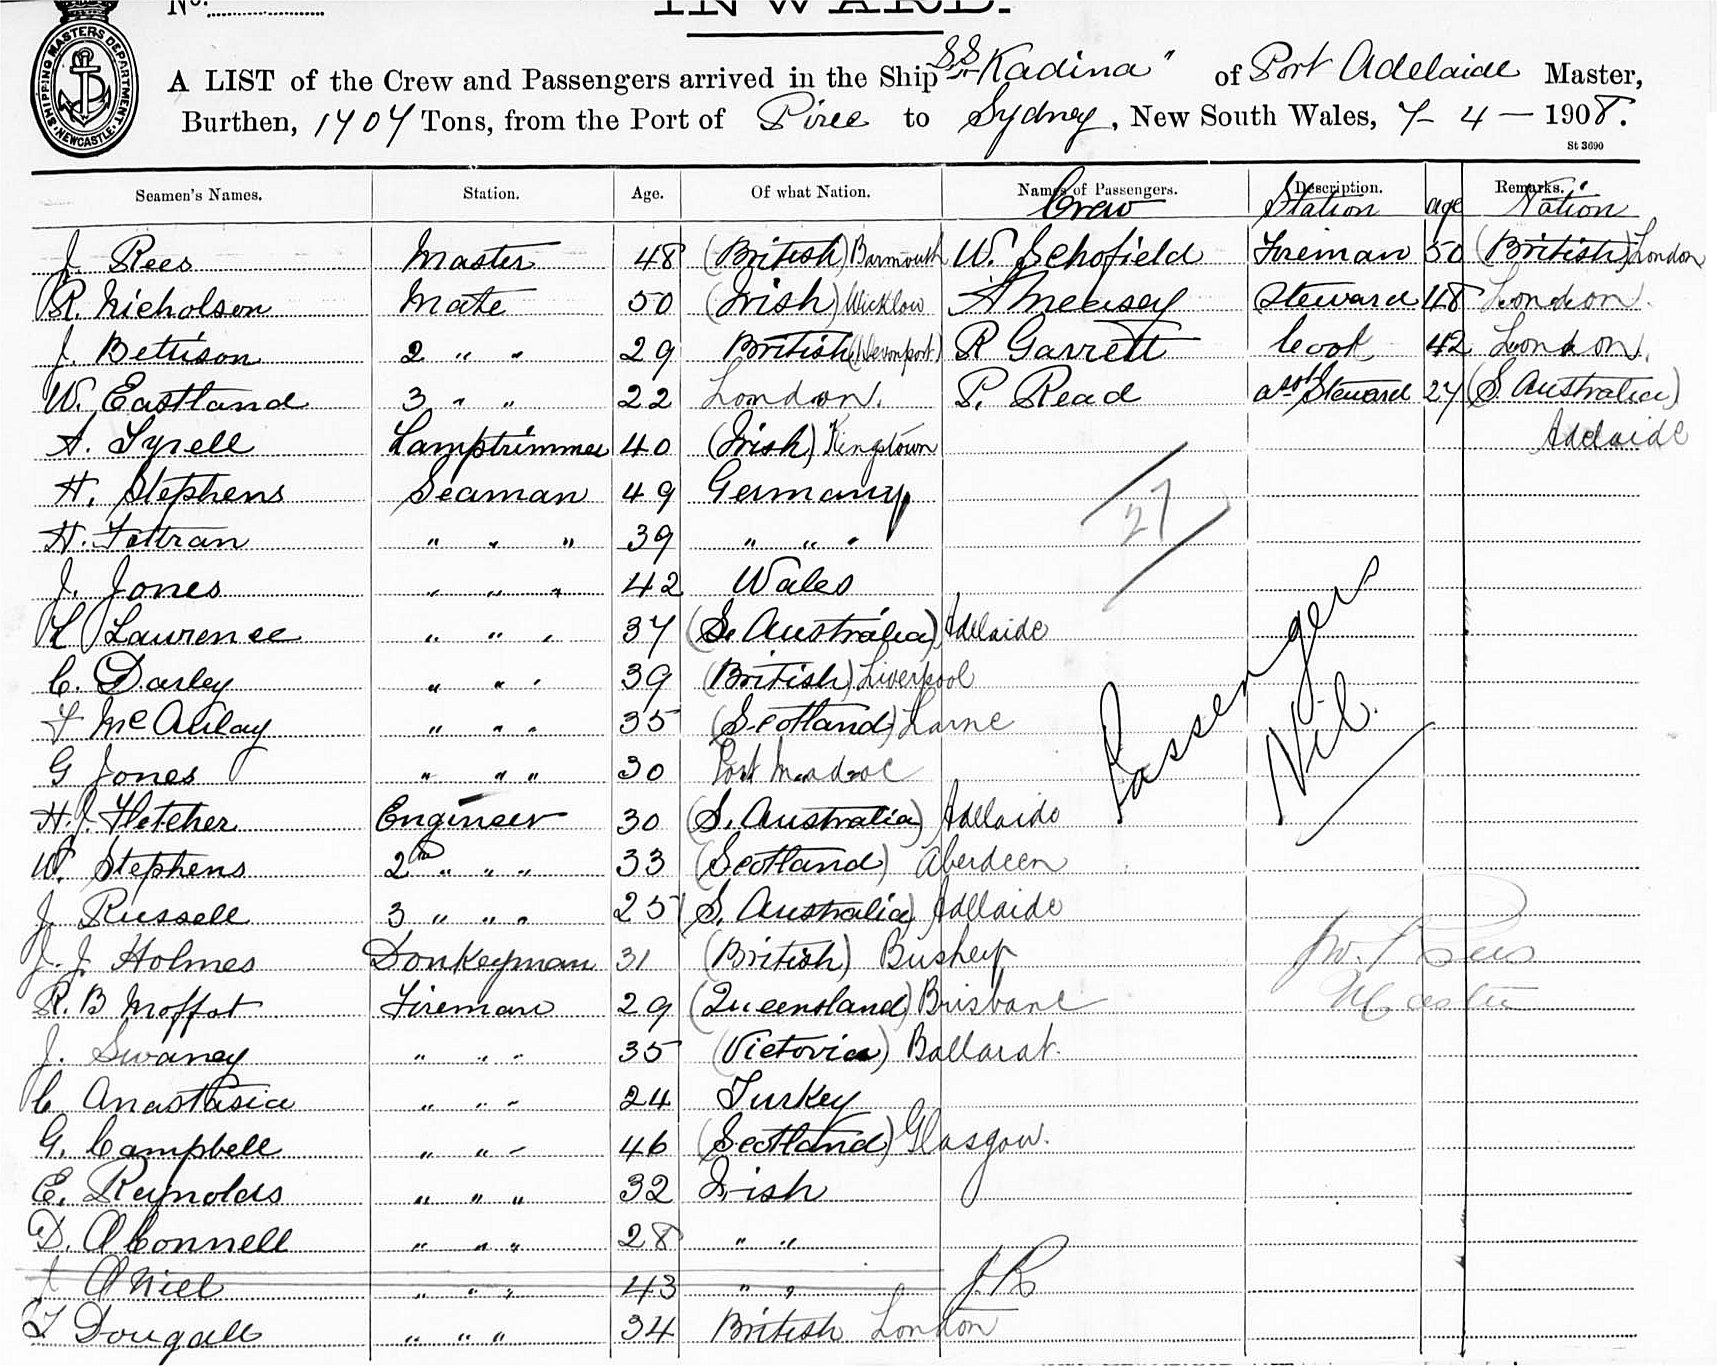 No.
INWARD.
SHIPPING MASTERS DEPARTMENT NEWCASTLE
A LIST of the Crew and Passengers arrived in the Ship "SS Kadina" of Port Adelaide Master,
Burthen, 1707 Tons, from the Port of Piree to Sydney, New South Wales, 7 - 4 - 1908.
St 3690
Seamen's Names. Station. Age. Of what Nation. Names of Passengers. Description. Remarks.
Crew Station age Nation
J. Rees Master 48 (British) Barmouth W. Schofield Fireman 50 (British) London
R. Nicholson Mate 50 (Irish) Wicklow A Measey Steward 48 London.
J. Bettison 2 " " 29 British (Devonport) R Garrett Cook 42 London.
W. Eastland 3 " " 22 London. P. Read asst Steward 27 (S. Australia)
Adelaide
A. Tyrell Lamptrimmer 40 (Irish) Kingstown
H. Stephens Seaman 49 Germany
27
H. Feltran " " " 39 " " "
J. Jones " " " 42 Wales
L Lawrence " " " 37 (S. Australia) Adelaide
C. Darley " " " 39 (British) Liverpool
F McAulay " " " 35 (Scotland) Larne
G Jones " " " 30 Port Madroc
Passengers
Nil.
H. J. Fletcher Engineer 30 (S. Australia) Adelaide
W. Stephens 2nd " " " 33 (Scotland) Aberdeen
J. Russell 3 " " " 25 (S. Australia) Adelaide
J. J. Holmes Donkeyman 31 (British) Bushey
Jno. Rees
Master
R. B Moffat Fireman 29 (Queensland) Brisbane
J. Swaney " " " 35 (Victoria) Ballarat.
C Anastasia " " " 24 Turkey
G. Campbell " " " 46 (Scotland) Glasgow.
E. Reynolds " " " 32 Irish
D. O'Connell " " " 28 " "
J O'Niel " " " 43 " " J.R
T Dougall " " " 34 British London